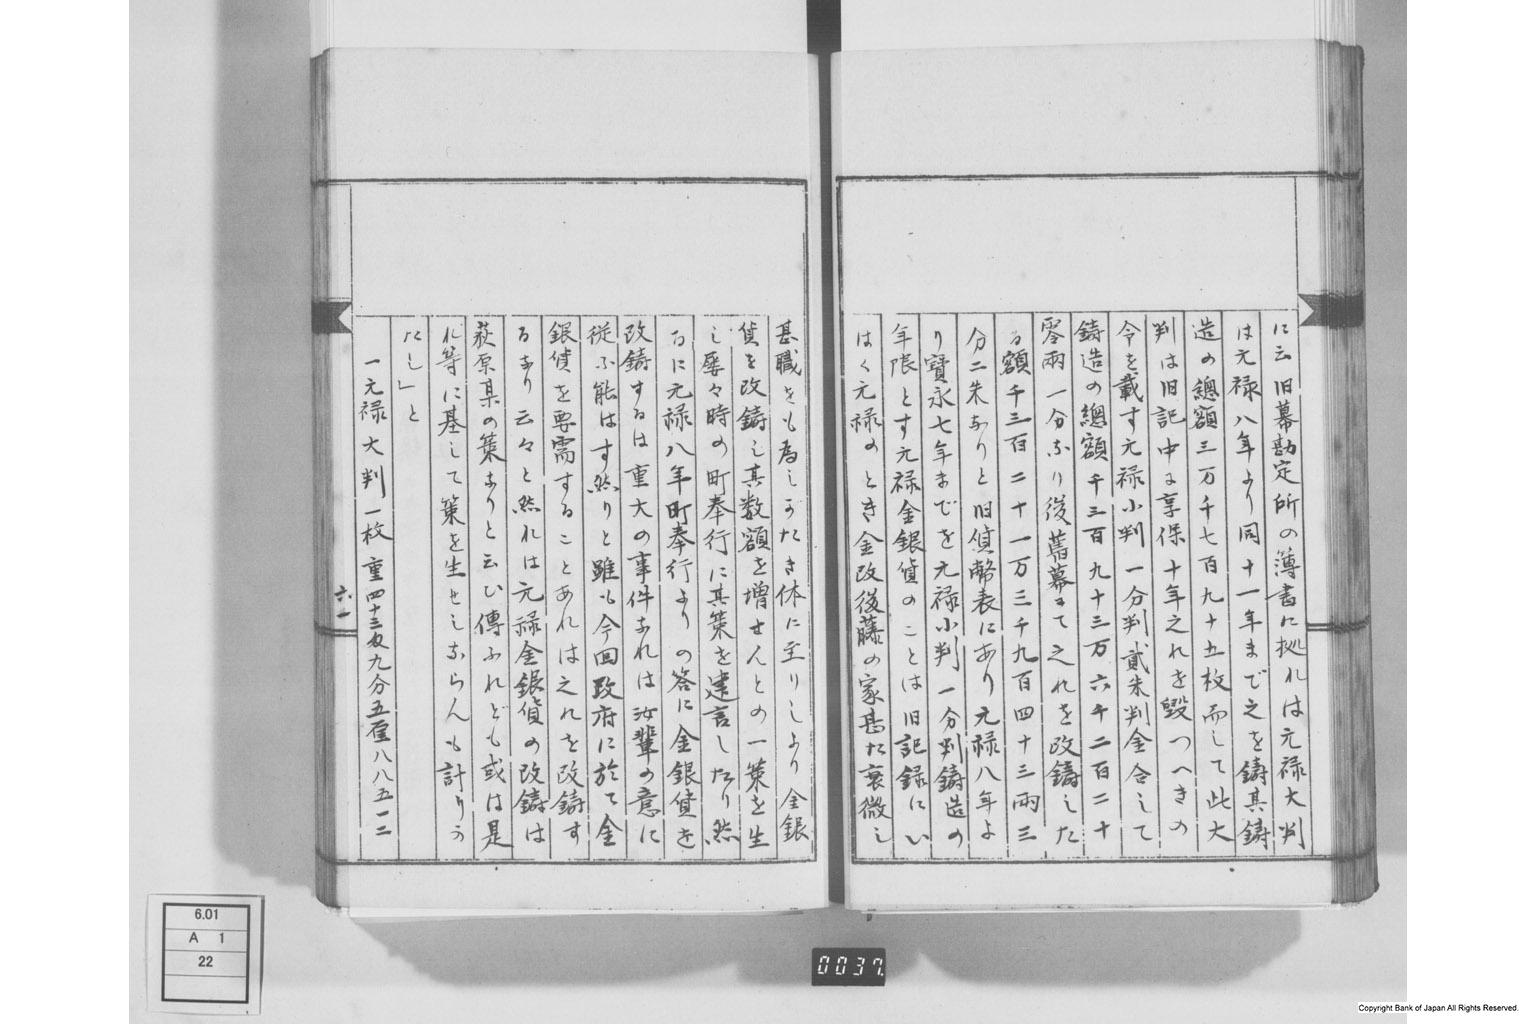 に云旧幕勘定所の簿書に拠れは元禄大判
は元禄八年より同十一年まで之を鋳其鋳
造の總額三万千七百九十五枚而して此大
判は旧記中に享保十年之れを毀つへきの
令を載す元禄小判一分判貳朱判金合して
鋳造の總額千三百九十三万六千二百二十
零兩一分なり後舊幕にて之れを改鋳した
る額千三百二十一万三千九百四十三兩三
分二朱なりと旧貨幣表にあり元禄八年よ
り寶永七年までを元禄小判一分判鋳造の
年限とす元禄金銀貨のことは旧記録にい
はく元禄のとき金改後藤の家甚た衰微し
甚職をも為しがたき体に至りしより金銀
貨を改鋳し其数額を増せんとの一策を生
し屡々時の町奉行に其策を建言したり然
るに元禄八年町奉行よりの答に金銀貨を
改鋳するは重大の事件なれは汝輩の意に
従ふ能はす然りと雖も今回政府に於て金
銀貨を要需することあれは之れを改鋳す
るなり云々と然れは元禄金銀貨の改鋳は
荻原某の策なりと云ひ傳ふれども或は是
れ等に基して策を生せしならんも計りか
たし」と
一元禄大判一枚重四十三匁九分五厘八八五一二
六一
6.01
A 1
22
0037.
Copyright Bank of Japan All Rights Reserved.